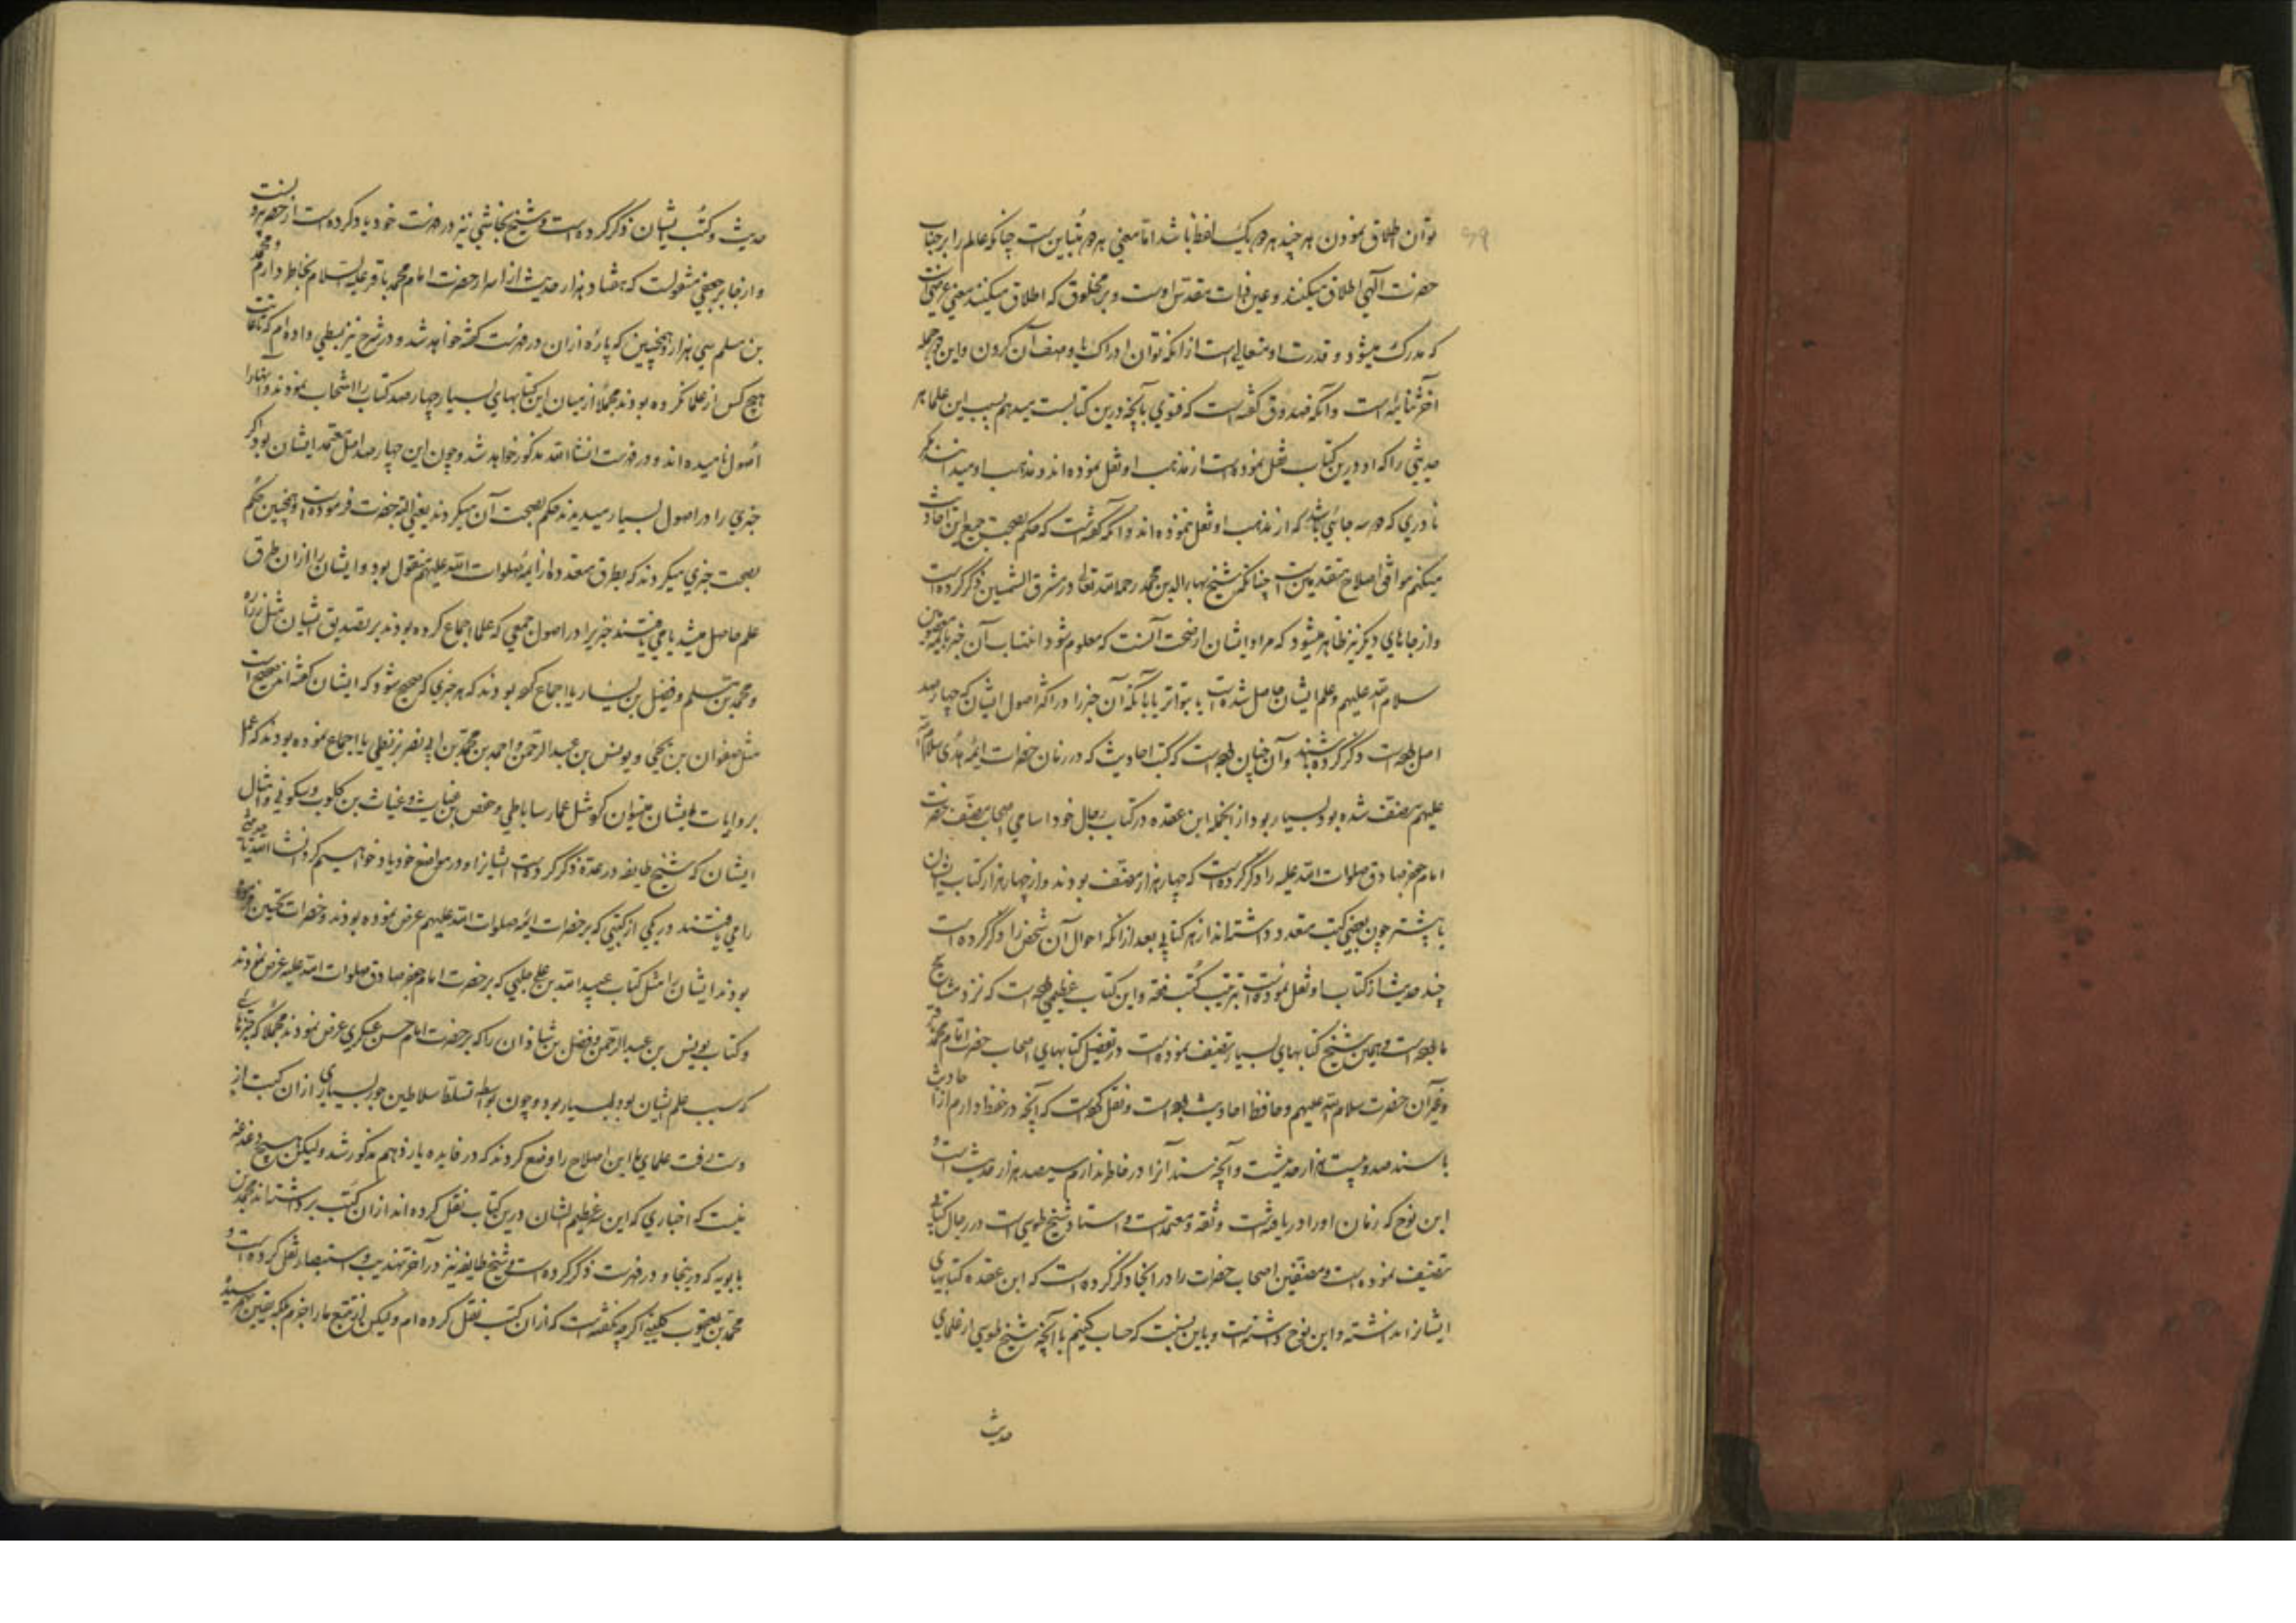 توان اطلاق نمودن هر چند هر دو یک لفظ باشد اما معنی هر دو متباین است چنانکه عالم را بر جناب
حضرت الهی اطلاق میکنند و عین ذات مقدس اوست و بر مخلوق که اطلاق میکنند معنی عرضی است
که مدرک میشود و قدرت او متعالی است از انکه توان ادراک یا وصف آن کردن و این دو جمله
آخر ثنائیه است و آنکه صدوق گفته است که فتوی بآنچه درین کتابست میدهم بسبب این علما هر
حدیثی را که او درین کتاب نقل نموده است از مذهب او نقل نموده اند و مذهب او میدانند مگر
نادری که دو سه جائی باشد که از مذهب او نقل ننموده اند و آنکه گفته است که حکم بصحت جمیع این احادیث
میکنم موافق اصلاح متقدمین است چنانکه شیخ بهاء الدین محمد رحمه الله تعالی در مشرق الشمسین ذکر کرده است
و از جاهای دیگر نیز ظاهر میشود که مراد ایشان از صحت آنست که معلوم شود انتساب آن خبر بائمه معصومین
سلام الله علیهم و علم ایشان حاصل شده است یا بتواتر یا بآنکه آن خبر را در اکثر اصول ایشان که چهار صد
اصل بوده است ذکر کرده باشند و آن چنان بوده است که کتب احادیث که در زمان حضرات ائمه هدی سلام الله
علیهم مصنف شده بود بسیار بود از انجمله ابن عقده در کتاب رجال خود اسامی اصحاب مصنف حضرت
امام جعفر صادق صلوات الله علیه را ذکر کرده است که چهار هزار مصنف بودند و از چهار هزار کتاب ایشان
یا بیشتر چون بعضی کتب متعدد داشته اند از هر کتابی بعد از انکه احوال آن شخص را ذکر کرده است
چند حدیث از کتاب او نقل نموده است بترتیب کتب فقه و این کتاب عظیمی بوده است که نزد مشایخ
ما بوده است و همین شیخ کتابهای بسیار تصنیف نموده است در تفصیل کتابهای اصحاب حضرت امام محمد باقر
و غیر آن حضرت سلام الله علیهم و حافظ احادیث بوده است و نقل کرده است که آنچه در حفظ دارم از احادیث
با سند صد و بیست هزار حدیثست و آنچه سند آنرا در خاطر ندارم سیصد هزار حدیث است و
ابن نوح که زمان او را دریافته است و ثقه و معتمدست و استاد شیخ طوسی است در رجال کتابی
تصنیف نموده است و مصنفین اصحاب حضرات را در انجا ذکر کرده است که ابن عقده کتابهای
ایشان را نداشته و ابن نوح داشته است و باین نسبت که حساب کنیم با آنچه شیخ طوسی از علمای
حدیث
حدیث و کتب ایشان ذکر کرده است و شیخ نجاشی نیز در فهرست خود یاد کرده است از حصر بیرونست
و از جابر جعفی منقولست که هفتاد هزار حدیث از اسرار حضرت امام محمد باقر علیه السلام بخاطر دارم و محمد
بن مسلم سی هزار و همچنین که پاره از ان در فهرست گفته خواهد شد و در شرح نیز بسطی داده ام که تا غایت
هیچ کس از علما نکرده بودند مجملا از میان این کتابهای بسیار چهار صد کتاب را انتخاب نمودند و آنها را
اصول نامیده اند و در فهرست انشاء الله مذکور خواهد شد و چون این چهار صد اصل معتمد ایشان بود اگر
خبری را در اصول بسیار میدیدند حکم بصحت آن میکردند یعنی البته حضرت فرموده است و همچنین حکم
بصحت خبری میکردند که بطرق متعدده از ائمه صلوات الله علیهم منقول بود و ایشان را از ان طرق
علم حاصل میشد یا می یافتند خبر را در اصول جمعی که علما اجماع کرده بودند بر تصدیق ایشان مثل زراره
و محمد بن مسلم و فضیل بن یسار یا اجماع کرده بودند که هر خبری که صحیح شود که ایشان گفته اند صحیح است
مثل صفوان بن یحیی و یونس بن عبد الرحمن و احمد بن محمد بن ابی نصر بزنطی یا اجماع نموده بودند که عمل
بروایات ایشان میتوان کرد مثل عمار ساباطی و حفص بن غیاث و غیاث بن کلوب و سکونی و امثال
ایشان که شیخ طایفه در عده ذکر کرده است ایشانرا و در مواضع خود یاد خواهیم کرد انشاء الله یا حدیثی
را می یافتند در یکی از کتبی که بر حضرات ائمه صلوات الله علیهم عرض نموده بودند و حضرات تحسین فرموده
بودند ایشان را مثل کتاب عبید الله بن علی حلبی که بر حضرت امام جعفر صادق صلوات الله علیه عرض نمودند
و کتاب یونس بن عبد الرحمن و فضل بن شاذان را که بر حضرت امام حسن عسکری عرض نمودند مجملا که چیزهائی
که سبب علم ایشان بود بسیار بود و چون بواسطه تسلط سلاطین جور بسیاری از ان کتب از
دست رفت علمای ما این اصلاح را وضع کردند که در فایده یازدهم مذکور شد ولیکن هیچ دغدغه
نیست که اخباری که این سه عظیم الشان درین کتاب نقل کرده اند از ان کتب برداشته اند محمد بن
بابویه که درینجا و در فهرست ذکر کرده است و شیخ طایفه نیز در آخر تهذیب و استبصار نقل کرده است و
محمد بن یعقوب کلینی اگر چه نگفته است که از ان کتب نقل کرده ام ولیکن از تتبع ما را جزم بلکه یقین بهم رسید